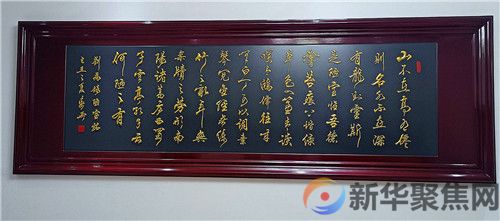 山不在高有仙
则名水不在深
有龙则灵斯
是陋室惟吾德
馨苔痕上阶绿
草色入帘青谈
笑有鸿儒往来
无白丁可以调素
琴阅金经无丝
竹之乱耳无
案牍之劳形南
阳诸葛庐西蜀
子云亭孔子云
何陋之有
刘禹锡陋室铭
新华聚焦网